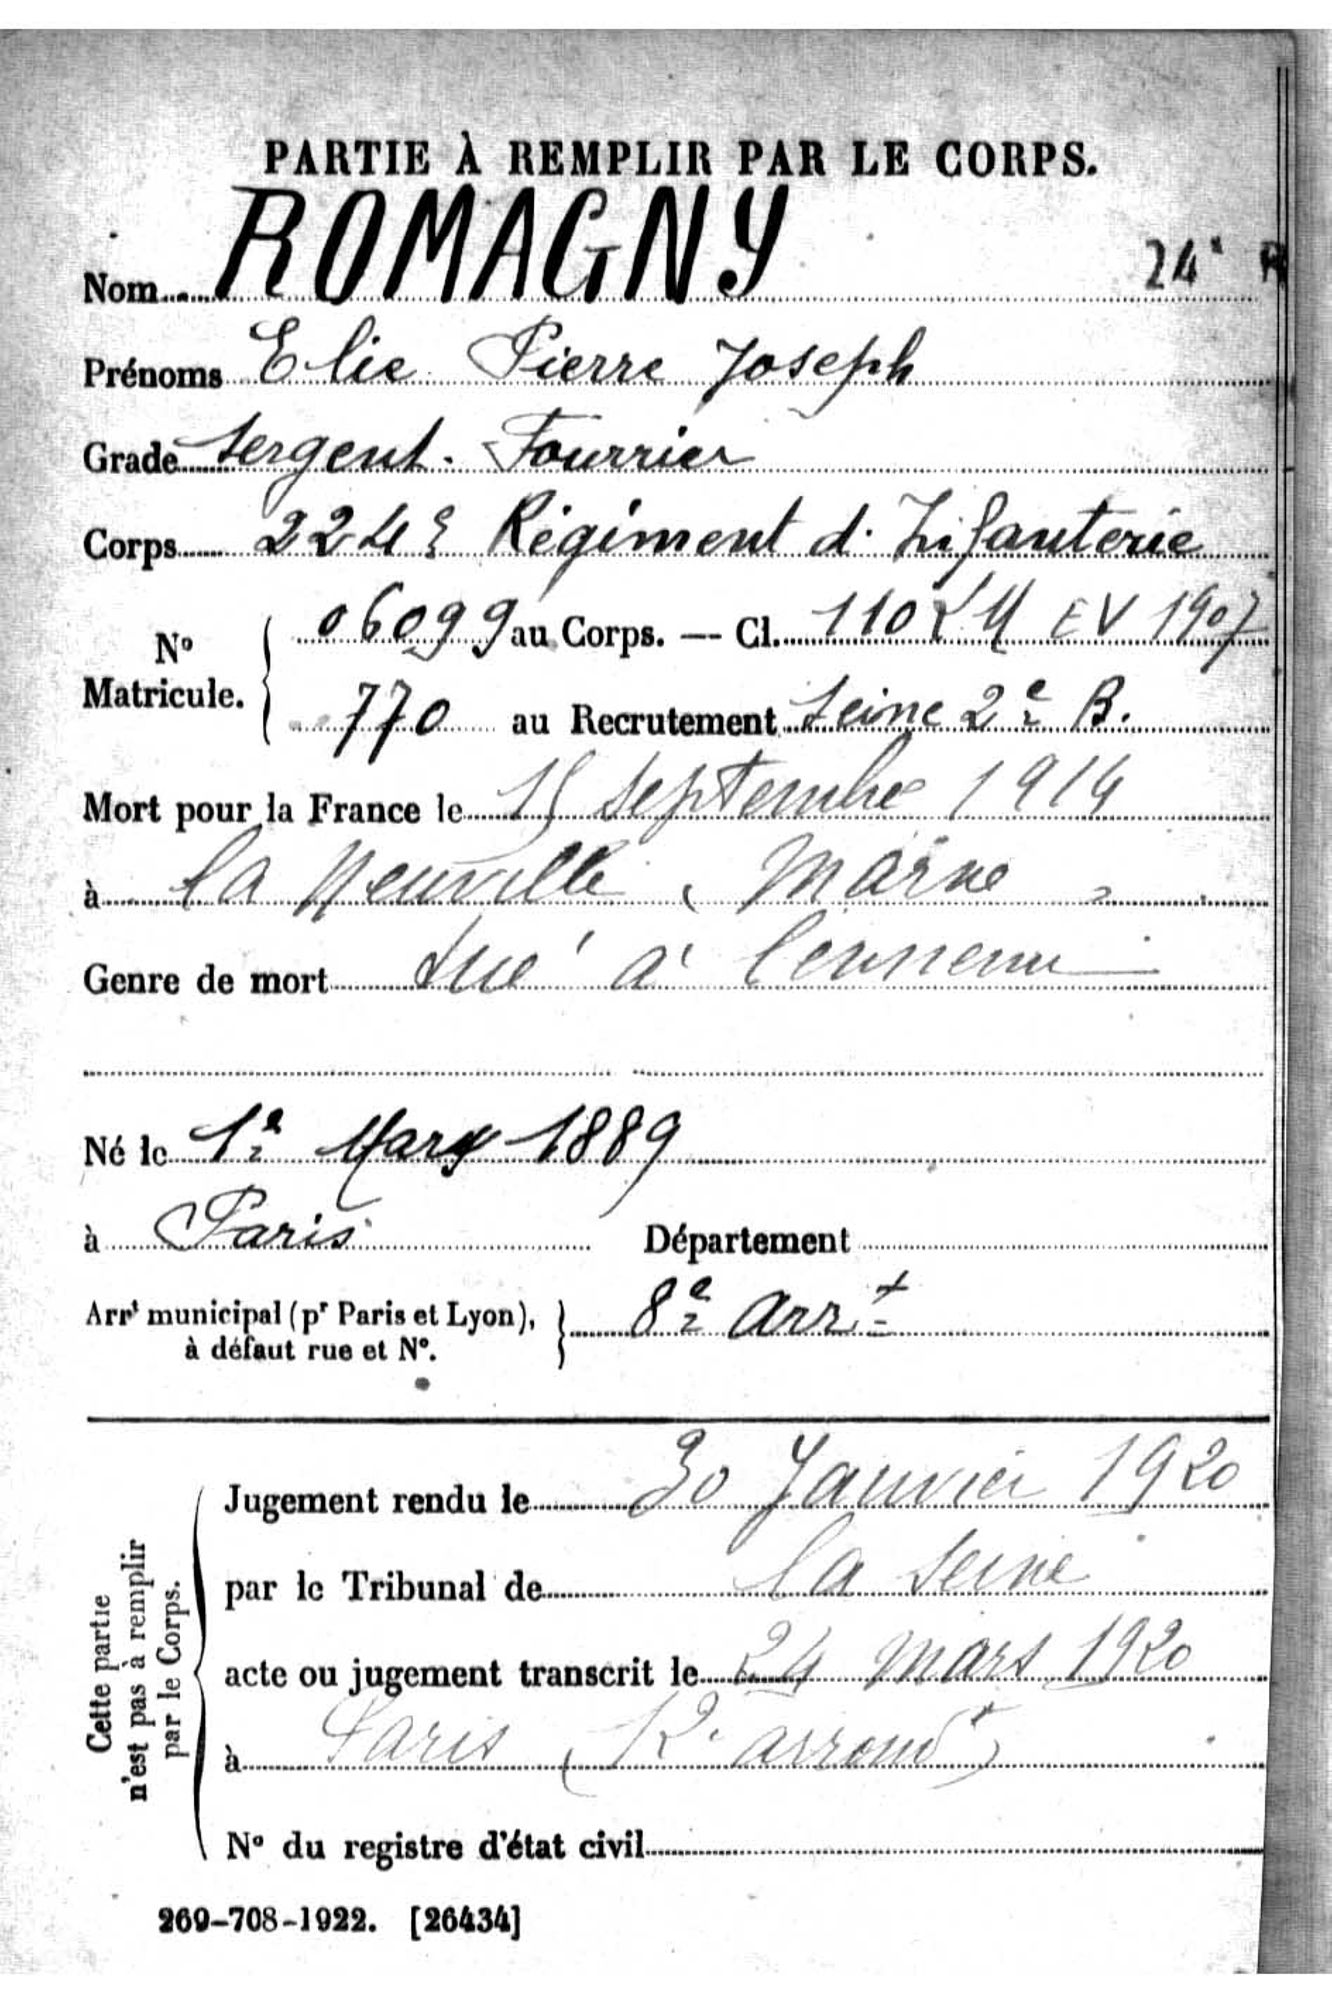 PARTIE À REMPLIR PAR LE CORPS.
Nom ROMAGNY 24e R
Prénoms Elie Pierre Joseph
Grade Sergent-Fourrier
Corps 224e Régiment d'Infanterie
No Matricule. 06099 au Corps. — Cl. EV 1907
770 au Recrutement Seine 2e B.
Mort pour la France le 15 Septembre 1914
à la Neuville (Marne)
Genre de mort tué à l'ennemi
Né le 1er Mars 1889
à Paris Département
Arrt municipal (pr Paris et Lyon), à défaut rue et No. 8e Arrt
Cette partie n'est pas à remplir par le Corps.
Jugement rendu le 30 Janvier 1920
par le Tribunal de la Seine
acte ou jugement transcrit le 24 mars 1920
à Paris (12e arrondt)
No du registre d'état civil
269-708-1922. [26434]